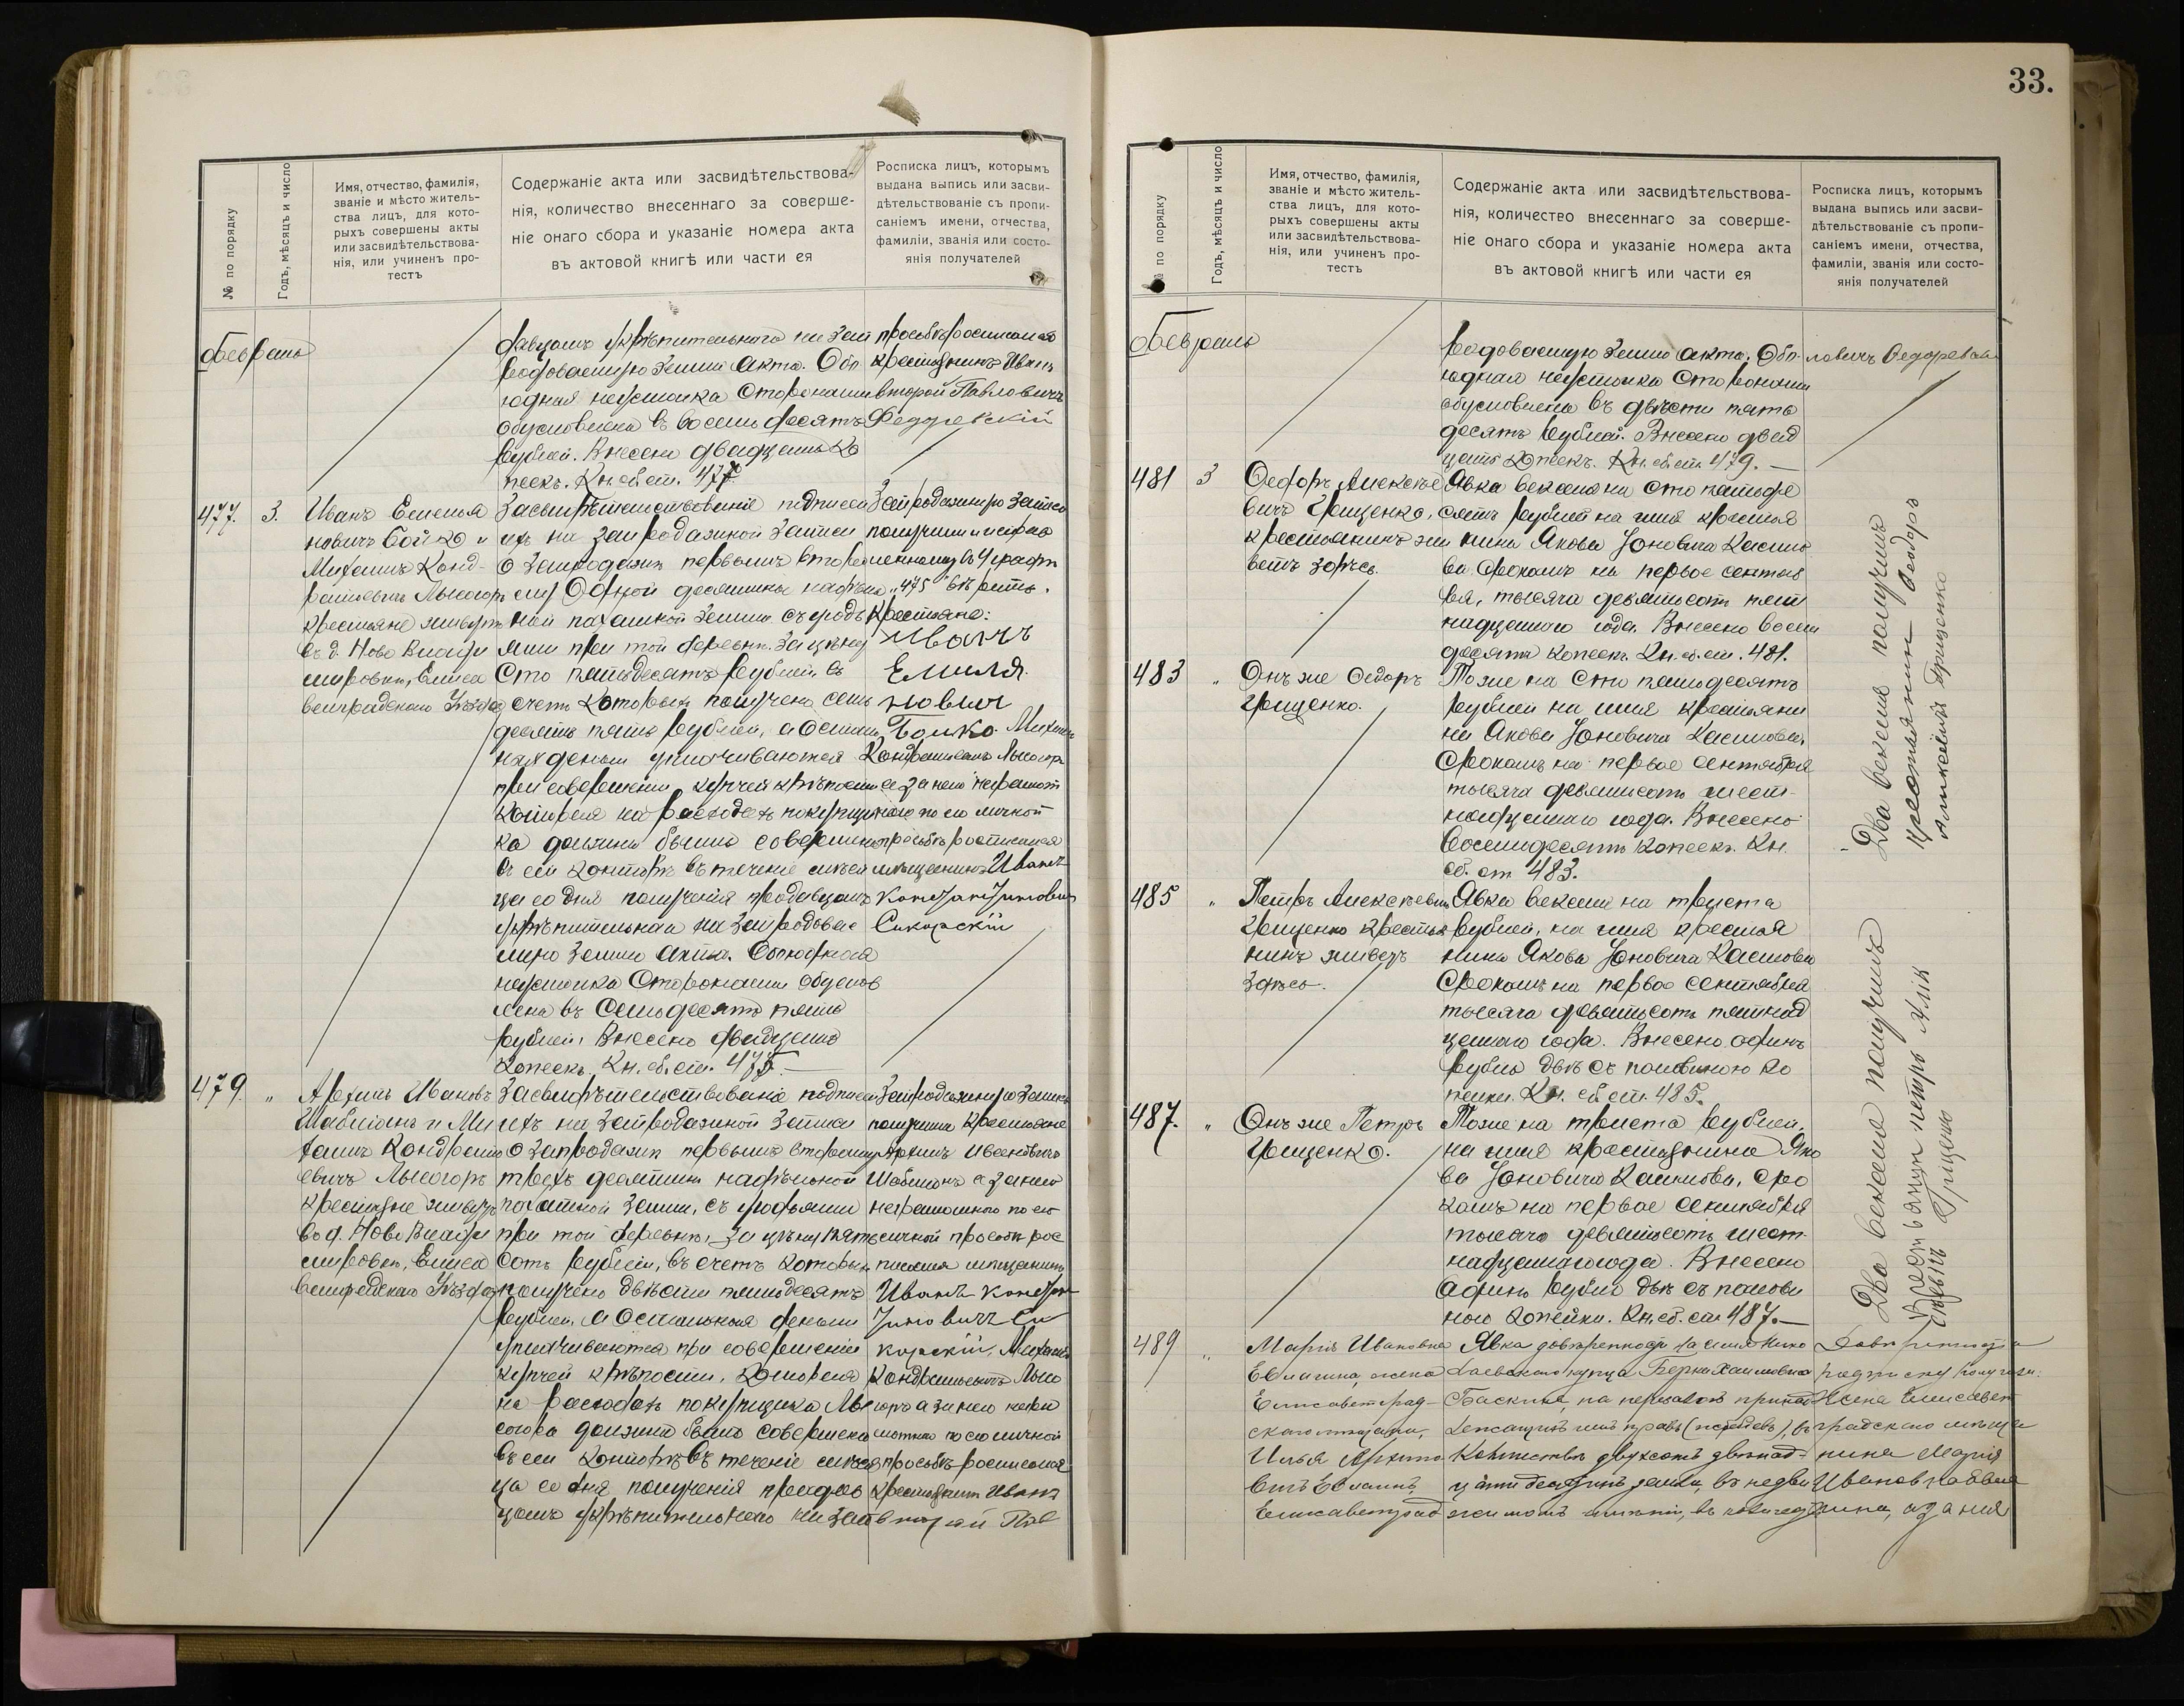 33.
№ по порядку
Годъ, мѣсяцъ и число
Имя, отчество, фамилія,
званіе и мѣсто житель-
ства лицъ, для кото-
рыхъ совершены акты
или засвидѣтельствова-
нія, или учиненъ про-
тестъ
Содержаніе акта или засвидѣтельствова-
нія, количество внесеннаго за соверше-
ніе онаго сбора и указаніе номера акта
въ актовой книгѣ или части ея
Росписка лицъ, которымъ
выдана выпись или засви-
дѣтельствованіе съ пропи-
саніемъ имени, отчества,
фамиліи, званія или состо-
янія получателей
Февраль
давцомъ укрѣпительнаго на зап
родоваемую землю акта. Обо
юдная неустойка сторонами
обусловлена въ восемьдесятъ
рублей. Внесено двадцать ко
пеекъ. Кн. сб. ст. 477
просьбѣ росписался
крестьянинъ Иванъ
второй Павловичъ
Федоревскій
477.
3.
Иванъ Емелья
новичъ Бойко и
Михаилъ Конд-
ратьевичъ Лысогоръ
крестьяне живутъ
въ д. Ново Влади
мировкѣ, Елиса
ветградскаго Уѣзда
Засвидѣтельствованіе подписей
ихъ на запродажной записи
о запродажѣ первымъ второ
му одной десятины надѣль
ной пахатной земли съ угодь
ями при той деревнѣ за цѣну
сто пятьдесятъ рублей, въ
счетъ которыхъ получено семь
десятъ пять рублей, а осталь
ныя деньги уплачиваются
при совершеніи купчей крѣпости
которая на расходахъ покупщи
ка должна быть совершена
въ сей конторѣ въ теченіе мѣся
ца со дня полученія продавцомъ
укрѣпительнаго на запродовае
мую землю акта. Обоюдная
неустойка сторонами обуслов
лена въ семьдесятъ пять
рублей. Внесено двадцать
копеекъ. Кн. сб. ст. 475.—
Запродажную запись
получили
"475"
крестьяне:
Иванъ
Емелья
новичъ
Бойко. Михаилъ
Кондратьевичъ Лысогоръ
а за него неграмот
наго по его личной
просьбѣ росписался
мѣщанинъ Иванъ
Константиновичъ
Сикорскій
479.
"
Архипъ Ивановъ
Шаблистъ и Ми
хаилъ Кондрать
евичъ Лысогоръ
крестьяне живутъ
въ д. Ново Влади
мировкѣ, Елиса
ветградскаго Уѣзда
Засвидѣтельствованіе подписей
ихъ на запродажной записи
о запродажѣ первымъ второму
трехъ десятинъ надѣльной
пахатной земли, съ угодьями
при той деревнѣ, за цѣну пять
сотъ рублей, въ счетъ которыхъ
получено двѣсти пятьдесятъ
рублей, а остальныя деньги
уплачиваются при совершеніи
купчей крѣпости, которая
на расходахъ покупщика Лы
согора должна быть совершена
въ сей конторѣ въ теченіе мѣся
ца со дня полученія продав
цомъ укрѣпительнаго на зап
Запродажную запись
получили крестьяне
Архипъ Ивановичъ
а за него
неграмотнаго по его
личной просьбѣ рос
писался мѣщанинъ
Иванъ Констан
тиновичъ Си
корскій, Михаилъ
Кондратьевичъ Лысо
горъ а за него негра
мотнаго по его личной
просьбѣ росписался
крестьянинъ Иванъ
второй Пав
по порядку
Годъ, мѣсяцъ и число
Имя, отчество, фамилія,
званіе и мѣсто житель-
ства лицъ, для кото-
рыхъ совершены акты
или засвидѣтельствова-
нія, или учиненъ про-
тестъ
Содержаніе акта или засвидѣтельствова-
нія, количество внесеннаго за соверше-
ніе онаго сбора и указаніе номера акта
въ актовой книгѣ или части ея
Росписка лицъ, которымъ
выдана выпись или засви-
дѣтельствованіе съ пропи-
саніемъ имени, отчества,
фамиліи, званія или состо-
янія получателей
Февраль
родоваемую землю акта. Обо-
юдная неустойка сторонами
обусловлена въ двѣсти пять
десятъ рублей. Внесено двад
цать копеекъ. Кн. сб. ст. 479.—
ловичъ Федоревскій
481
3
Федоръ Алексѣе
вичъ Грищенко,
крестьянинъ жи
ветъ здѣсь.
Явка векселя на сто пятьде
сятъ рублей на имя крестья
нина Якова Іоновича Касьяно
ва срокомъ на первое сентяб
ря, тысяча девятьсотъ пят
надцатаго года. Внесено восемь
десятъ копеекъ. Кн. сб. ст. 481.
483
"
Онъ же Федоръ
Грищенко.
Тоже на сто пятьдесятъ
рублей на имя крестьяни
на Якова Іоновича Касьянова,
срокомъ на первое сентября
тысяча девятьсотъ шест-
надцатаго года. Внесено
восемьдесятъ копеекъ. Кн.
сб. ст. 483.
Два векселя получилъ
крестьянинъ Феодоръ
Алексѣевичъ Грищенко
485
"
Петръ Алексѣевичъ
Грищенко крестья
нинъ живетъ
здѣсь.
Явка векселя на триста
рублей, на имя крестья
нина Якова Іоновича Касьянова
срокомъ на первое сентября
тысяча девятьсотъ пятнад
цатаго года. Внесено одинъ
рубль двѣ съ половиною ко
пейки. Кн. сб. ст. 485.
487.
"
Онъ же Петръ
Грищенко.
Тоже на триста рублей,
на имя крестьянина Яко
ва Іоновича Касьянова, сро
комъ на первое сентября
тысяча девятьсотъ шест-
надцатаго года. Внесено
одинъ рубль двѣ съ полови
ною копейки. Кн. сб. ст. 487.—
Два векселя получилъ
489
"
Марія Ивановна
Евлагина, жена
Елисаветград-
скаго мѣщанина,
Илья Архипо
вичъ
Елисаветград
Явка довѣренности на имя Нико
лаевскаго купца Берки Хаимовича
Баскина, на
лежащихъ имъ правъ
двухсотъ двѣнад-
цати десятинъ земли, въ недви
жимомъ имѣніи,
Довѣренность
получили:
Жена Елисавет
градскаго мѣща
нина Марія
Ивановна Евла
гина, а за нея